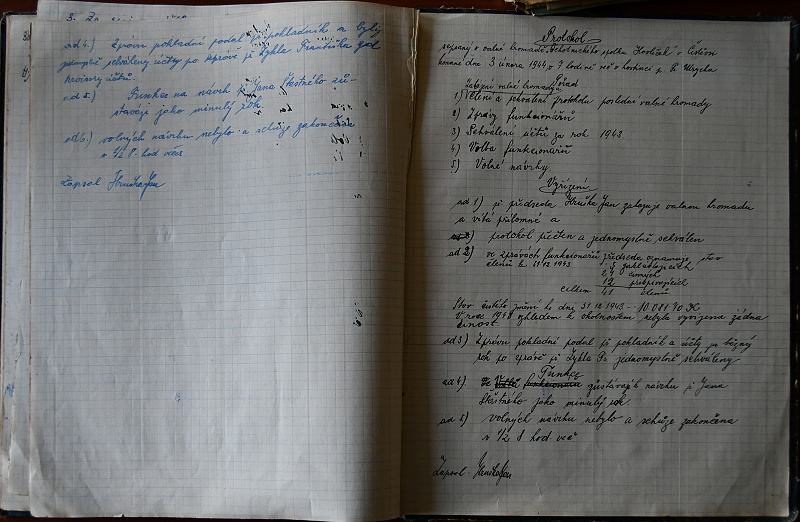 ad 4.) Zprávu pokladní podal p. pokladník a byly
jednomyslně schváleny účty po zprávě p. Lykla Františka
revisora účtů.
ad 5.) Funkce na návrh p. Jana Šťestného zů-
stávají jako minulý rok.
ad 6.) volných návrhu nebylo a schůze zakončena
v 1/2 8 hod več.
Zapsal Hruška Jan
Protokol
sepsaný o valné hromadě Ochotnického spolku
konané dne 3 února 1944 o 7 hodině več v hostinci p.
Pořad
Zahájení valné hromady
1) Čtení a schválení protokolu poslední valné hromady
2) Zprávy funkcionářů
3) Schválení účtů za rok 1943.
4) Volba funkcionářů
5) Volné návrhy.
Vyřízení
ad 1) p. předseda Hruška Jan zahajuje valnou hromadu
a vítá přítomné a
protokol přečten a jednomyslně schválen
ad 2) ve zprávách funkcionářů předseda oznamuje stav
členů ke 31/12 1943 zakládajících
činných
12 přispívajících
celkem 41 členů
Stav čistého jmění ke dni 31.12 1943 - 10.081.70 K
V roce 1943 vzhledem k okolnostem nebyla vyvíjena žádná
činnost.
ad 3) Zprávu pokladní podal p. pokladník a účty za běžný
rok po zprávě p. Lykla Fr. jednomyslně schváleny.
ad 4) Funkce zůstávají k návrhu p. Jana
Šťestného jako minulý rok.
ad 5) volných návrhu nebylo a schůze zakončena
v 1/2 8 hod. več.
Zapsal. Hruška Jan